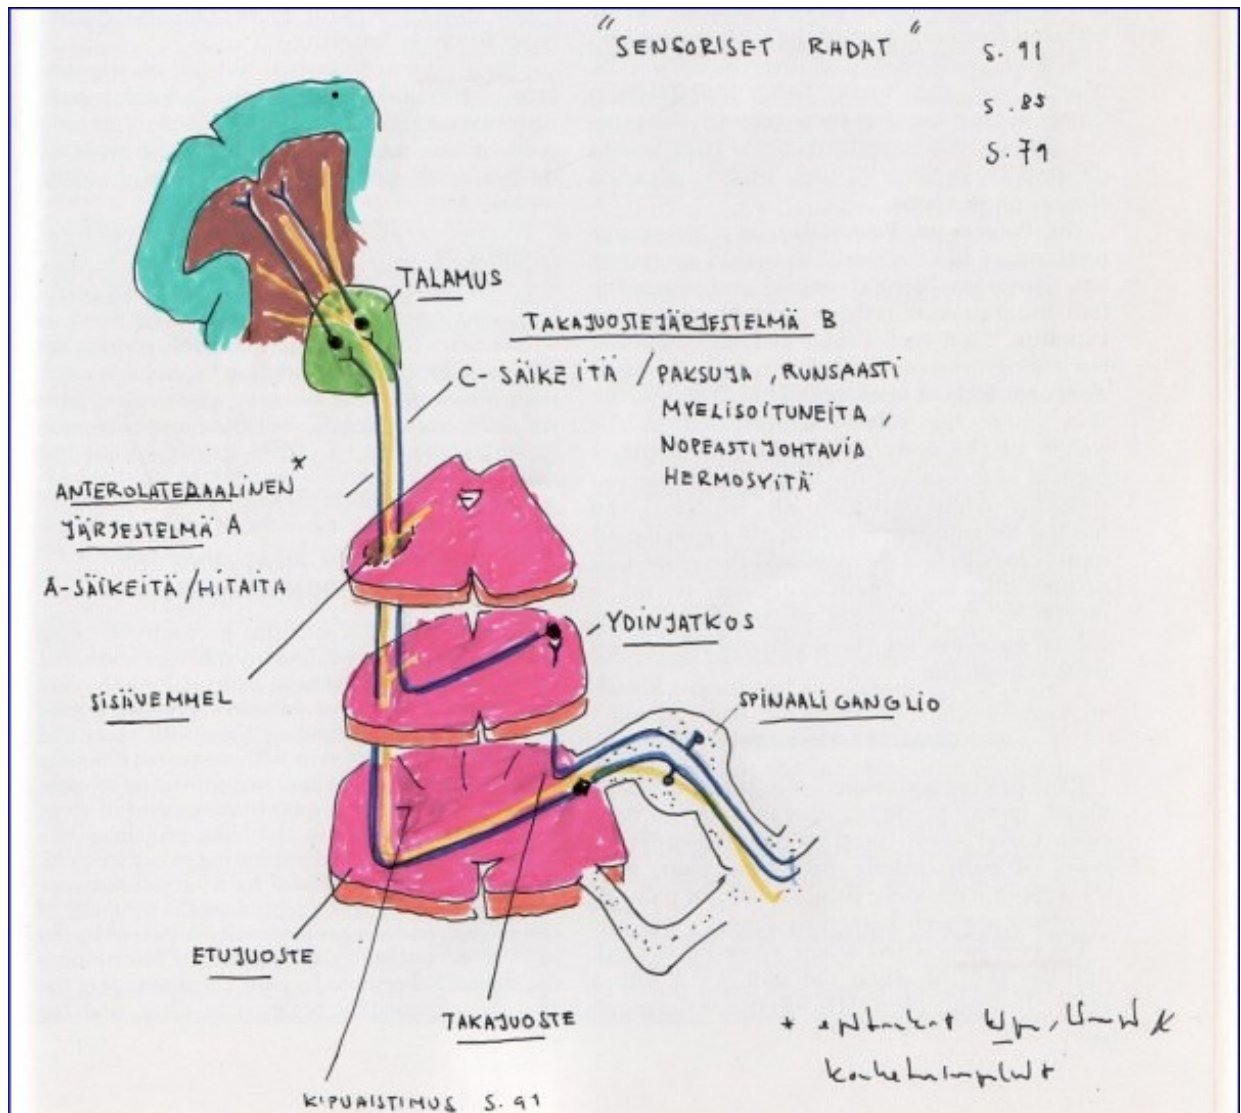 "SENSORISET RADAT"
S. 91
S. 85
S. 71
TALAMUS
TAKAJUOSTEJÄRJESTELMÄ B
C-SÄIKEITÄ / PAKSUJA, RUNSAASTI
MYELISOITUNEITA,
NOPEASTI JOHTAVIA
HERMOSYITÄ
ANTEROLATERAALINEN *
JÄRJESTELMÄ A
A-SÄIKEITÄ / HITAITA
YDINJATKOS
SISÄVEMMEL
SPINAALIGANGLIO
ETUJUOSTE
TAKAJUOSTE
KIPUAISTIMUS S. 91
*